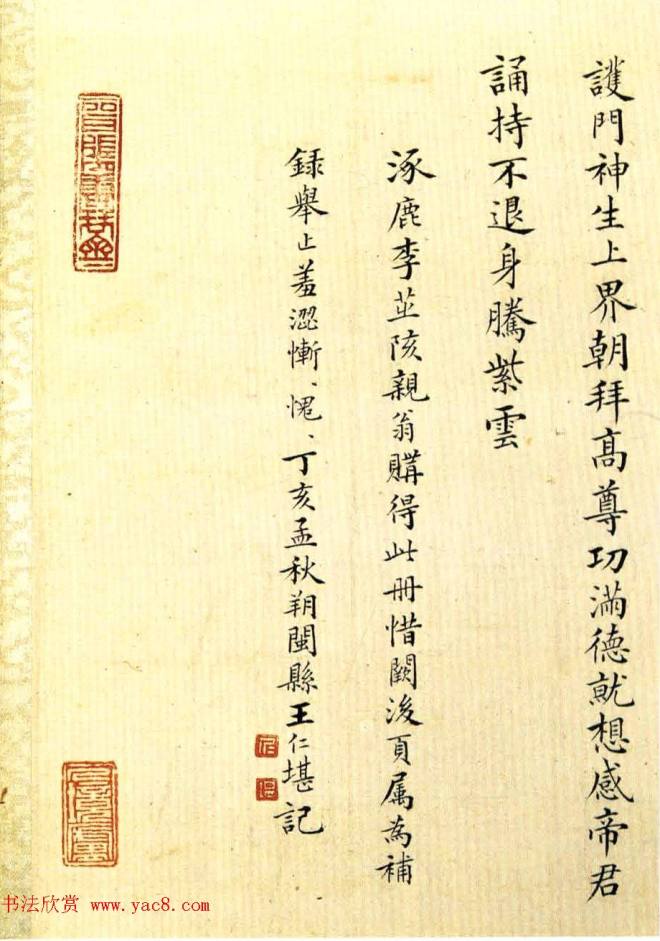 護門神生上界朝拜高尊功滿德就想感帝君
誦持不退身騰紫雲
涿鹿李茝陔親翁購得此册惜闕後頁属為補
録舉止羞澀慚、愧、丁亥孟秋朔閩縣王仁堪記
书法欣赏 www.yac8.com